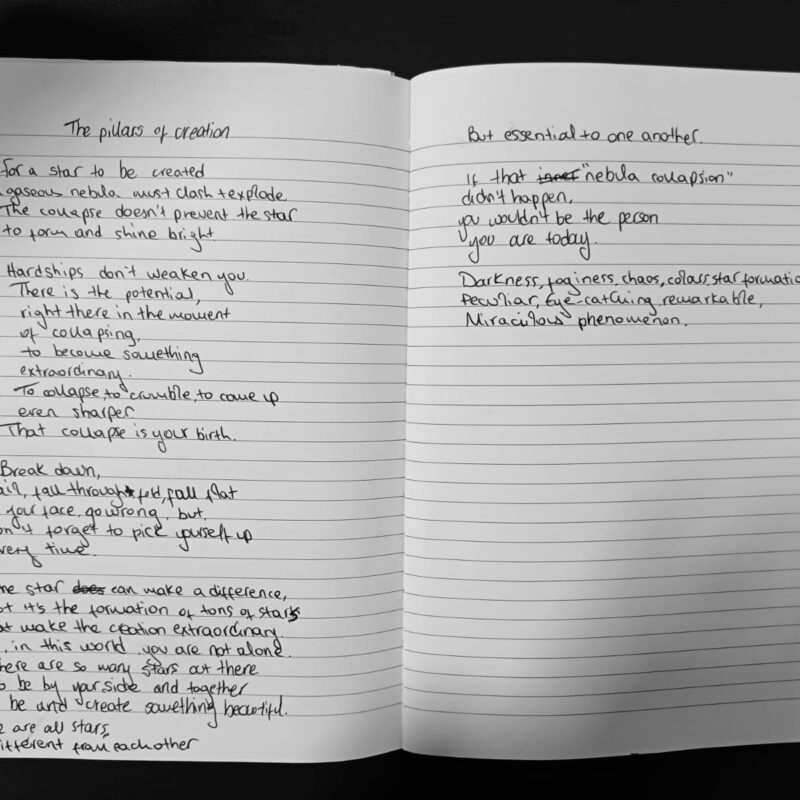 The pillars of creation
for a star to be created
gaseous nebula must clash + explode.
The collapse doesn't prevent the star
to form and shine bright.
Hardships don't weaken you.
There is the potential,
right there in the moment
of collapsing,
to become something
extraordinary.
To collapse, to crumble, to come up
even sharper
That collapse is your birth.
Break down,
ail, fall through fold, fall flat
your face, go wrong, but
n't forget to pick yourself up
very time.
ne star does can make a difference,
ot it's the formation of tons of stars
at make the creation extraordinary.
, in this world you are not alone.
here are so many stars out there
o be by your side and together
be and create something beautiful.
e are all stars,
ifferent from each other
But essential to one another.
If that inner "nebula collapsion"
didn't happen,
you wouldn't be the person
you are today.
Darkness, foginess, chaos, colors, star formatio
Peculiar, Eye-catching, remarkable,
Miraculous phenomenon.